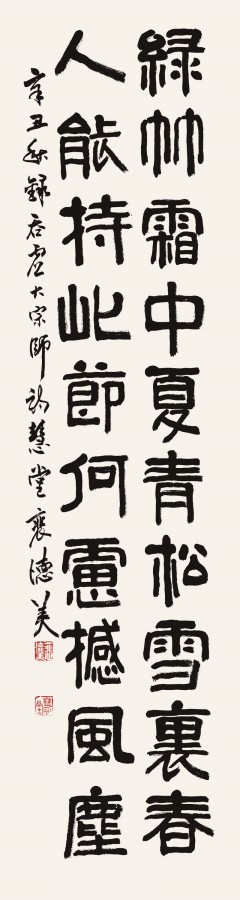 綠竹霜中夏青松雪裏春
人能持此節何慮撼風塵
辛丑秋錄吞虛大宗師詩慧堂裵德美